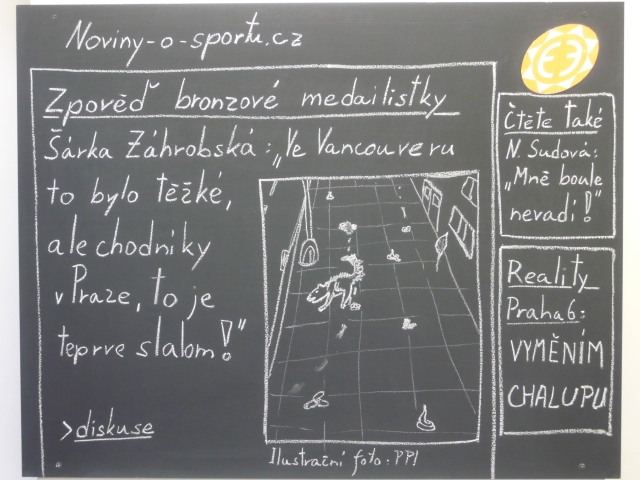 Noviny-o-sportu.cz
Zpověď bronzové medailistky
Šárka Záhrobská: „Ve Vancouveru
to bylo těžké,
ale chodníky
v Praze, to je
teprve slalom!"
>diskuse
Ilustrační foto: PPI
Čtěte také
N. Sudová:
„Mně boule
nevadí!"
Reality
Praha 6:
VYMĚNÍM
CHALUPU